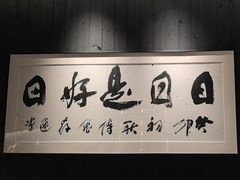 日日是好日
癸卯初秋